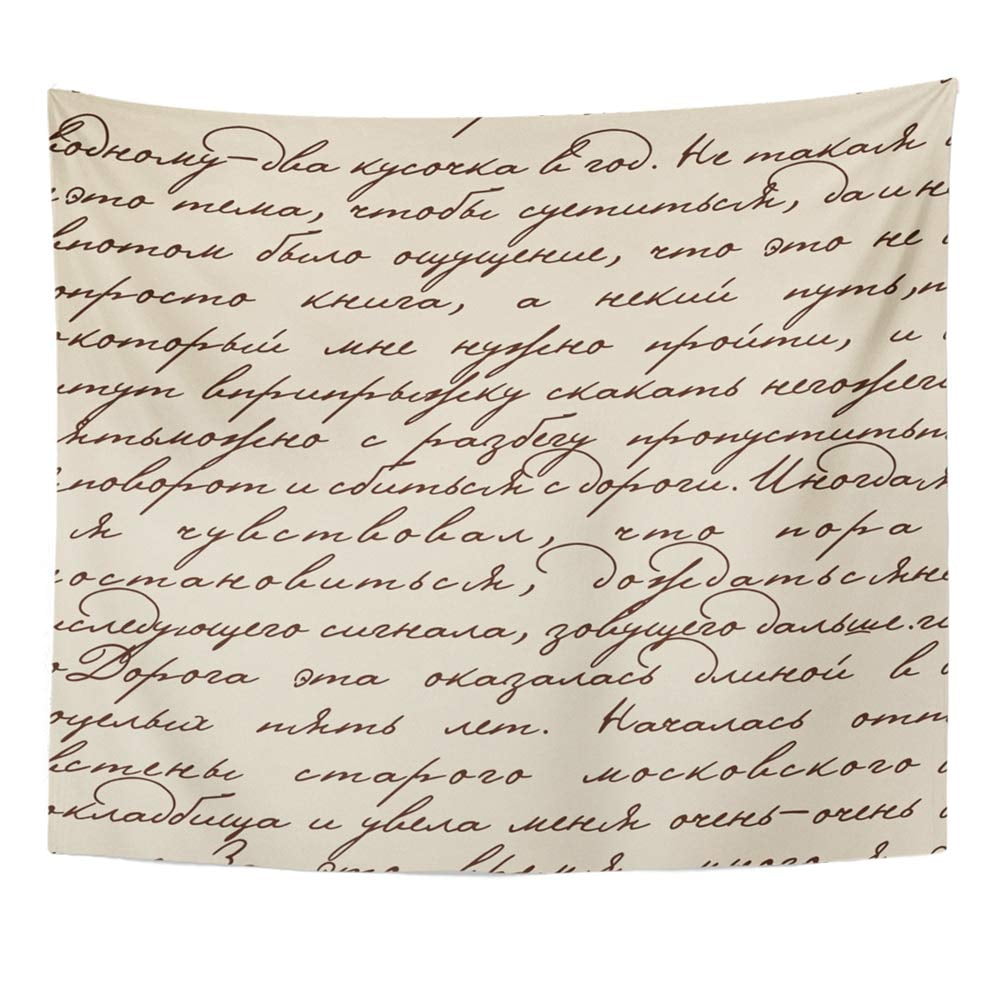 одному—два кусочка в год. Не такая
это тема, чтобы суетиться, да и н
потом было ощущение, что это не
просто книга, а некий путь,
который мне нужно пройти, и
тут вприпрыжку скакать негоже
можно с разбегу пропустить
поворот и сбиться с дороги. Иногда
я чувствовал, что пора
остановиться, дождаться
следующего сигнала, зовущего дальше.
Дорога эта оказалась длиной в
целых пять лет. Началась от
стены старого московского
кладбища и увела меня очень-очень
За это время много я